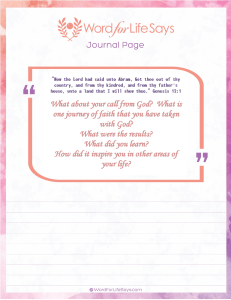 Word for Life Says
Journal Page
"Now the Lord had said unto Abram, Get thee out of thy
country, and from thy kindred, and from thy father's
house, unto a land that I will shew thee." Genesis 12:1
What about your call from God? What is
one journey of faith that you have taken
with God?
What were the results?
What did you learn?
How did it inspire you in other areas of
your life?
WordForLifeSays.com